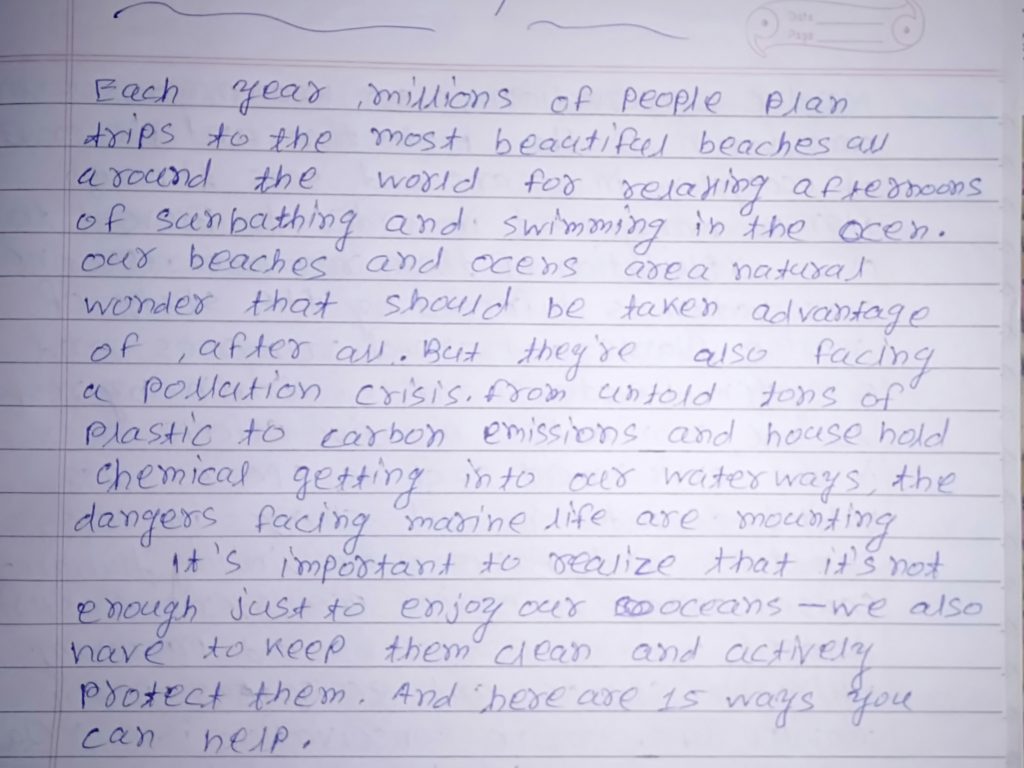 Date
Page
Each year, millions of people plan
trips to the most beautiful beaches all
around the world for relaxing afternoons
of sunbathing and swimming in the ocen.
our beaches and ocens are a natural
wonder that should be taken advantage
of, after all. But they're also facing
a pollution crisis. from untold tons of
plastic to carbon emissions and house hold
chemical getting into our waterways, the
dangers facing marine life are mounting
It's important to realize that it's not
enough just to enjoy our oceans - we also
have to keep them clean and actively
protect them. And here are 15 ways you
can help.